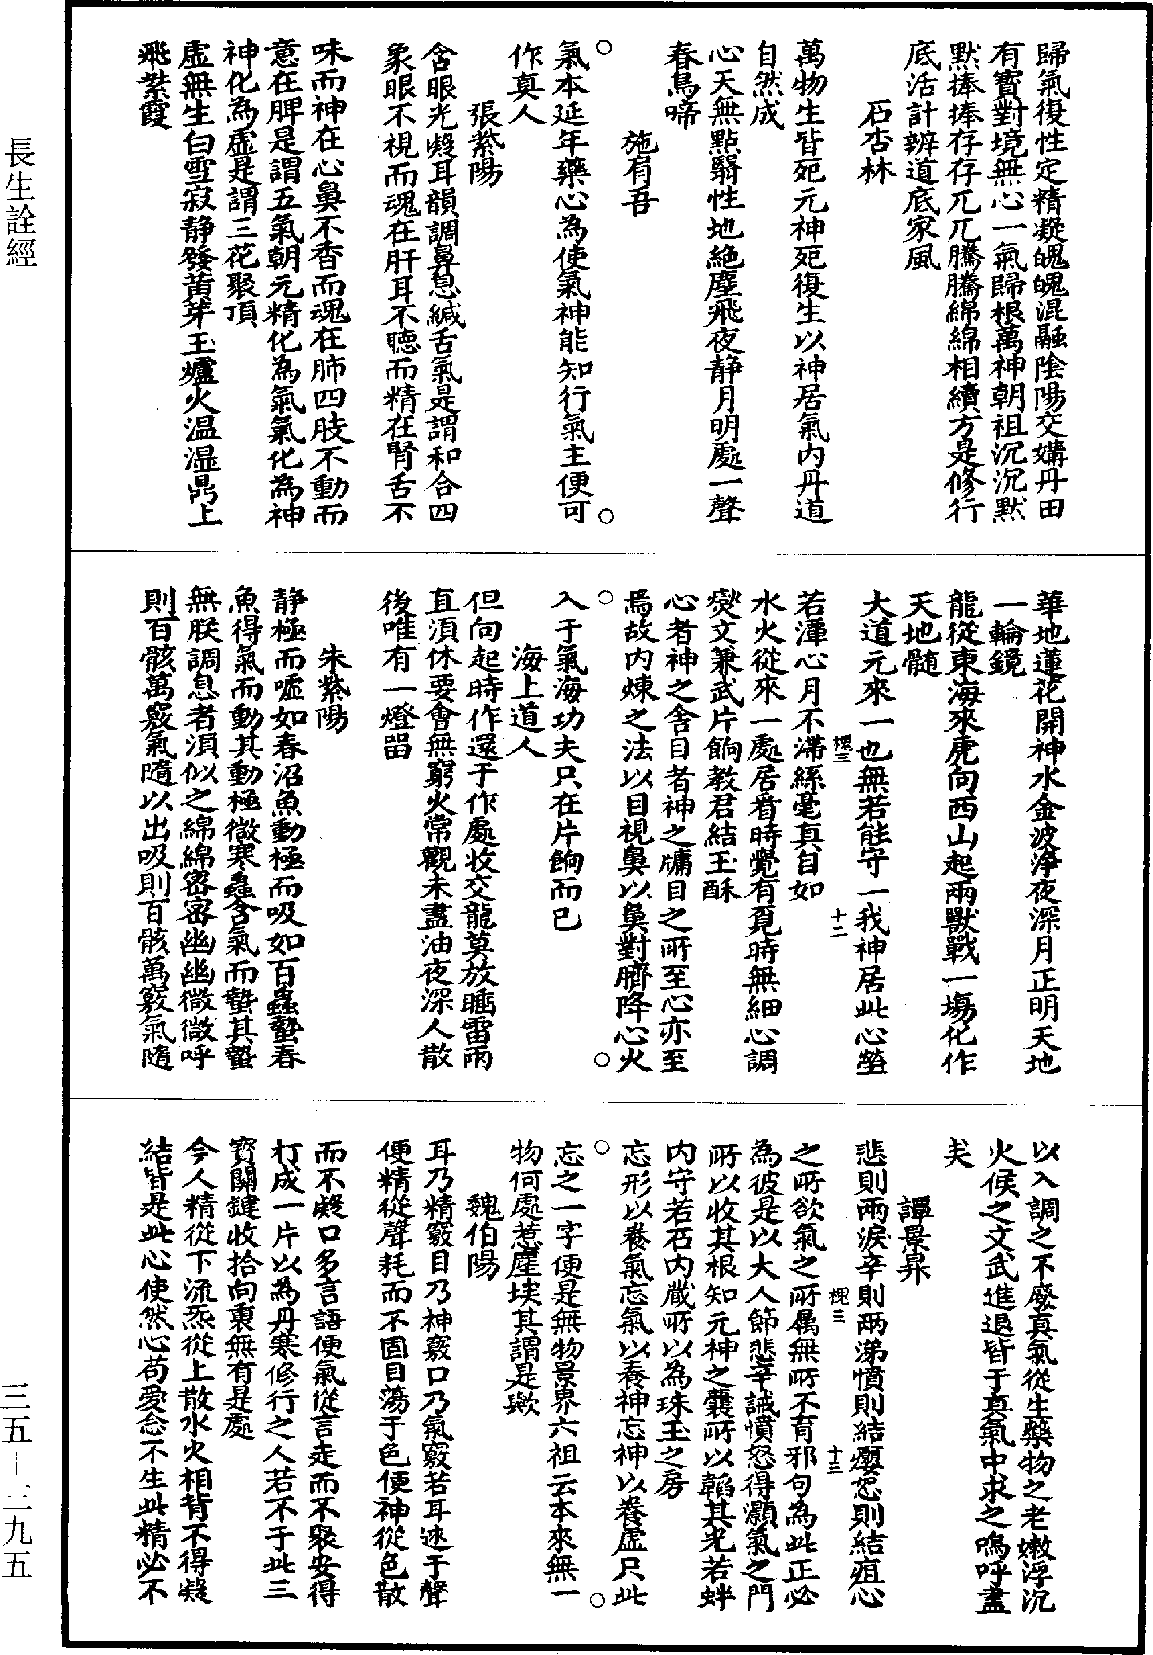 長生詮經
歸氣復性定精凝魄魄混融陰陽交媾丹田
有寶對境無心一氣歸根萬神朝祖沉沉默
默捧捧存存兀兀騰騰綿綿相續方是修行
底活計辨道底家風
石杏林
萬物生皆死元神死復生以神居氣內丹道
自然成
心天無點翳性地絕塵飛夜静月明處一聲
春鳥啼
施肩吾
氣本延年藥心為使氣神能知行氣主便可
作真人
張紫陽
含眼光凝耳韻調鼻息緘舌氣是謂和合四
象眼不視而魂在肝耳不聽而精在腎舌不
味而神在心鼻不香而魂在肺四肢不動而
意在脾是謂五氣朝元精化為氣氣化為神
神化為虛是謂三花聚頂
虛無生白雪寂静發黃芽玉爐火温湿鼎上
飛紫霞
華地蓮花開神水金波淨夜深月正明天地
一輪鏡
龍從東海來虎向西山起兩獸戰一塲化作
天地髓
大道元來一也無若能守一我神居此心瑩
若潭心月不滯絲毫真自如
水火從來一處居看時覺有覓時無細心調
燮文兼武片餉教君結玉酥
心者神之舍目者神之牖目之所至心亦至
焉故内煉之法以目視鼻以鼻對臍降心火
入于氣海功夫只在片餉而已
海上道人
但向起時作還于作處收交龍莫放睡雷雨
直湏休要會無窮火常觀未盡油夜深人散
後唯有一燈㽞
朱紫陽
静極而噓如春沼魚動極而吸如百蟲蟄春
魚得氣而動其動極微寒蟲含氣而蟄其蟄
無朕調息者湏似之綿綿密密幽幽微微呼
則百骸萬竅氣隨以出吸則百骸萬竅氣隨
以入調之不廢真氣從生藥物之老嫩浮沉
火候之文武進退皆于真氣中求之嗚呼盡
矣
譚景昇
悲則兩淚辛則兩涕憤則結癭怒則結疽心
之所欲氣之所属無所不育邪句為此正必
為彼是以大人節悲辛誡憤怒得灝氣之門
所以收其根知元神之囊所以韜其光若蚌
内守若石内藏所以為珠玉之房
忘形以養氣忘氣以養神忘神以養虛只此
忘之一字便是無物景界六祖云本來無一
物何處惹塵埃其謂是歟
魏伯陽
耳乃精竅目乃神竅口乃氣竅若耳逐于聲
便精從聲耗而不固目蕩于色便神從色散
而不凝口多言語便氣從言走而不聚安得
打成一片以為丹寒修行之人若不于此三
寳關鍵收拾向裏無有是處
今人精從下流炁從上散水火相背不得凝
結皆是此心使然心苟愛念不生此精必不
三五－二九五